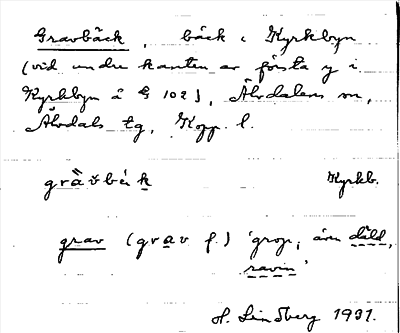 Gravbäck, bäck i Kyrkbyn
(vid undre kanten av första y i
Kyrkbyn å G 102), Älvdalens sn,
Älvdals tg, Kopp. l.
Kyrkb.
grav (grav f.) 'grop, även däld,
ravin'
H. Lindberg 1931.